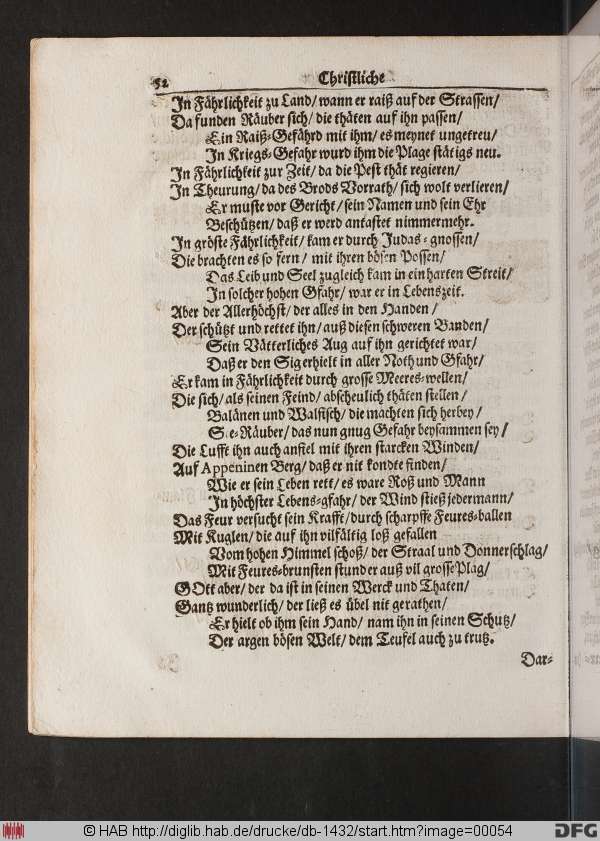 52 Christliche
In Fährlichkeit zu Land/ wann er raiß auf der Strassen/
Da funden Räuber sich/ die thäten auf ihn passen/
Ein Raiß-Gefährd mit ihm/ es meynet ungetreu/
In Kriegs-Gefahr wurd ihm die Plage stätigs neu.
In Fährlichkeit zur Zeit/ da die Pest thät regieren/
In Theurung/ da des Brods Vorrath/ sich wolt verlieren/
Er muste vor Gericht/ sein Namen und sein Ehr
Beschützen/ daß er werd antastet nimmermehr.
In gröste Fährlichkeit/ kam er durch Judas-gnossen/
Die brachten es so fern/ mit ihren bösen Possen/
Das Leib und Seel zugleich kam in ein harten Streit/
In solcher hohen Gfahr/ war er in Lebenszeit.
Aber der Allerhöchst/ der alles in den Handen/
Der schützt und rettet ihn/ auß diesen schweren Banden/
Sein Vätterliches Aug auf ihn gerichtet war/
Daß er den Sig erhielt in aller Noth und Gfahr/
Er kam in Fährlichkeit durch grosse Meeres-wellen/
Die sich/ als seinen Feind/ abscheulich thäten stellen/
Balänen und Walfisch/ die machten sich herbey/
See-Räuber/ das nun gnug Gefahr beysammen sey/
Die Lufft ihn auch anfiel mit ihren starcken Winden/
Auf Appeninen Berg/ daß er nit kondte finden/
Wie er sein Leben rett/ es ware Roß und Mann
In höchster Lebens-gfahr/ der Wind stieß jedermann/
Das Feur versucht sein Krafft/ durch scharpffe Feures-ballen
Mit Kuglen/ die auf ihn vilfältig loß gefallen
Vom hohen Himmel schoß/ der Straal und Donnerschlag/
Mit Feures-brunsten stund er auß vil grosse Plag/
GOtt aber/ der da ist in seinen Werck und Thaten/
Gantz wunderlich/ der ließ es übel nit gerathen/
Er hielt ob ihm sein Hand/ nam ihn in seinen Schutz/
Der argen bösen Welt/ dem Teufel auch zu trutz.
Dar-
© HAB http://diglib.hab.de/drucke/db-1432/start.htm?image=00054
DFG